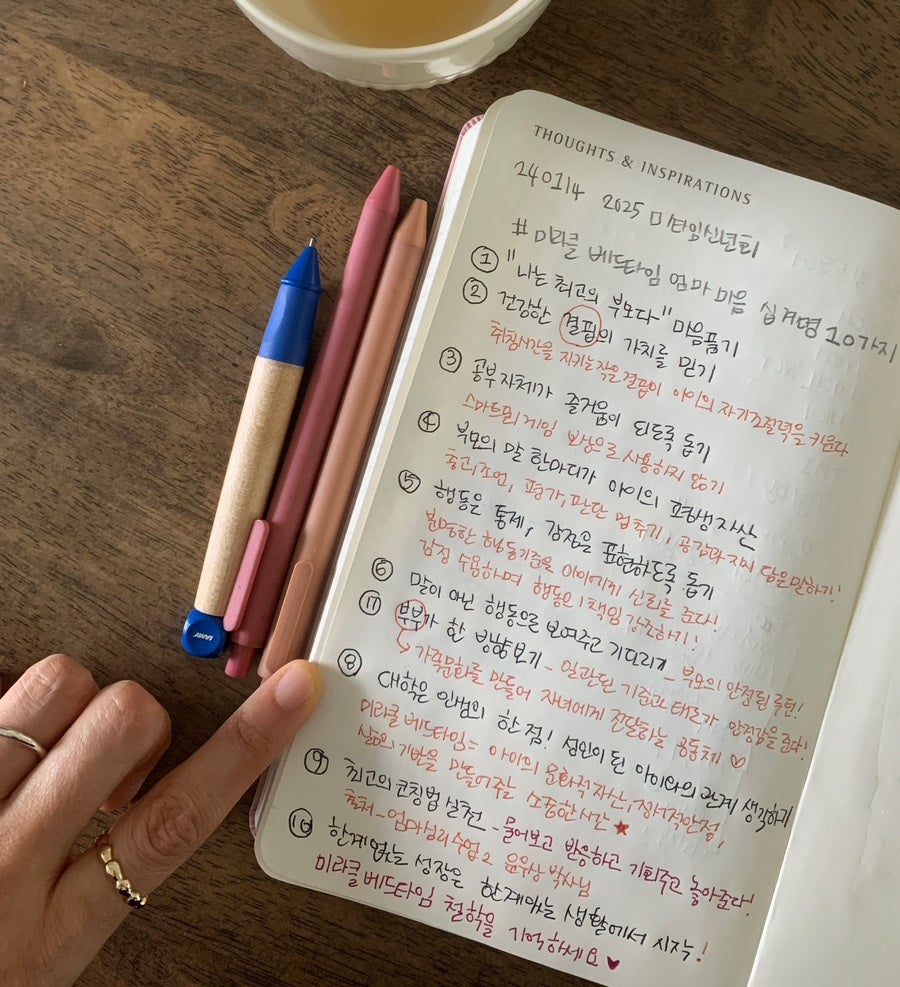 THOUGHTS & INSPIRATIONS
240114 2025 미타임신년회
# 미라클 베드타임 엄마 마음 십계명 10가지
① "나는 최고의 부모다" 마음품기
② 건강한 결핍의 가치를 믿기
취침시간을 지키는 작은 결핍이 아이의 자기조절력을 키운다
③ 공부 자체가 즐거움이 되도록 돕기
스마트폰, 게임 보상으로 사용하지 않기
④ 부모의 말 한마디가 아이의 평생자산
충고, 조언, 평가, 판단 멈추기, 공감과 지지 담은 말하기!
⑤ 행동은 통제, 감정은 표현하도록 돕기
분명한 행동기준을 아이에게 신뢰를 준다!
감정 수용하며 행동의 책임 강조하기!
⑥ 말이 아닌 행동으로 보여주고 기다리기 - 부모의 안정된 루틴!
⑦ 부부가 한 방향 보기 - 일관된 기준과 태도가 안정감을 준다!
가족문화를 만들어 자녀에게 전달하는 공동체 ♡
⑧ 대학은 인생의 한 점! 성인이 된 아이와의 관계 생각하기
미라클 베드타임 = 아이의 문화적 자산, 정서적 안정,
삶의 기반을 만들어주는 소중한 시간 ★
⑨ 최고의 코칭법 실천 - 물어보고 반응하고 기회주고 놓아준다!
출처 - 엄마심리수업 2 윤우상 박사님
⑩ 한계없는 성장은 한계있는 생활에서 시작!
미라클 베드타임 철학을 기억하세요 ♥
LAMY